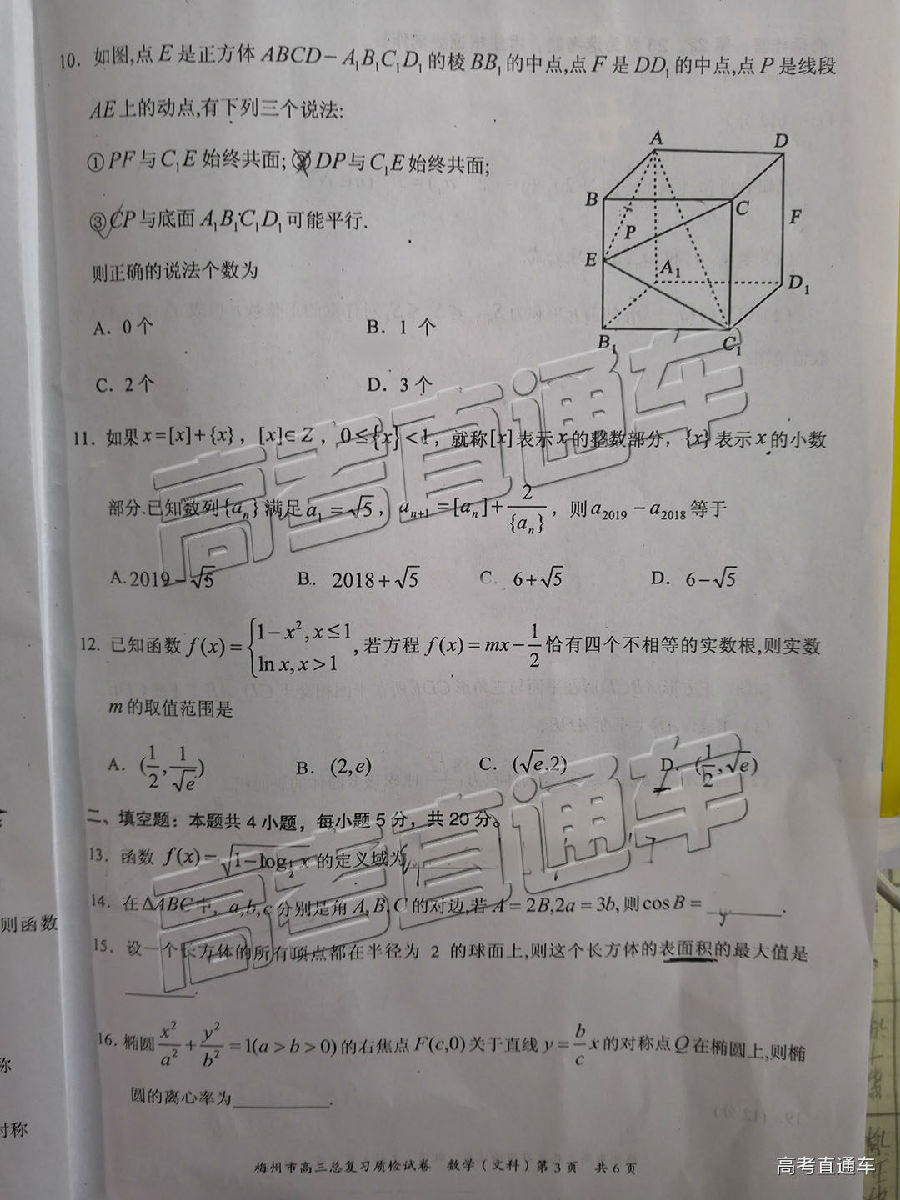 10. 如图,点 E 是正方体 ABCD-A₁B₁C₁D₁ 的棱 BB₁ 的中点,点 F 是 DD₁ 的中点,点 P 是线段
AE 上的动点,有下列三个说法:
①PF 与 C₁E 始终共面; ②DP 与 C₁E 始终共面;
③CP 与底面 A₁B₁C₁D₁ 可能平行.
则正确的说法个数为
A. 0 个 B. 1 个
C. 2 个 D. 3 个
A D
B C
P F
E A₁ D₁
B₁ C₁
11. 如果 x=[x]+{x}, [x]∈Z, 0≤{x}<1, 就称[x]表示 x 的整数部分, {x}表示 x 的小数
部分.已知数列{aₙ}满足 a₁=√5, aₙ₊₁=[aₙ]+2/{aₙ}, 则 a₂₀₁₉-a₂₀₁₈ 等于
A. 2019-√5 B. 2018+√5 C. 6+√5 D. 6-√5
12. 已知函数 f(x)={1-x²,x≤1 ln x,x>1 ,若方程 f(x)=mx-1/2 恰有四个不相等的实数根,则实数
m 的取值范围是
A. (1/2,1/√e) B. (2,e) C. (√e,2) D. (1/2,√e)
二、填空题：本题共 4 小题，每小题 5 分，共 20 分。
13. 函数 f(x)=√(1-log_{1/2}x) 的定义域为
14. 在ΔABC 中, a,b,c 分别是角 A,B,C 的对边,若 A=2B,2a=3b,则 cosB=________.
15. 设一个长方体的所有顶点都在半径为 2 的球面上,则这个长方体的表面积的最大值是
________.
16. 椭圆 x²/a²+y²/b²=1(a>b>0)的右焦点 F(c,0)关于直线 y=b/c x 的对称点 Q 在椭圆上,则椭
圆的离心率为________.
梅州市高三总复习质检试卷 数学（文科）第 3 页 共 6 页
则函数
称
对称
高考直通车
高考直通车
高考直通车